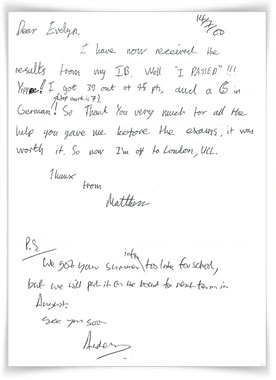 14/7/00
Dear Evelyn,
I have now received the
results from my I.B. Well "I PASSED"!!!
Yippee! I got 39 out of 45 pts, and a 6 in
(top mark is 7)
German! So Thank You very much for all the
help you gave me before the exams, it was
worth it. So now I'm off to London, UCL.
Thanx
from
Matthew
P.S
info
We got your summer too late for school,
but we will put it on the board for next term in
August.
See you soon